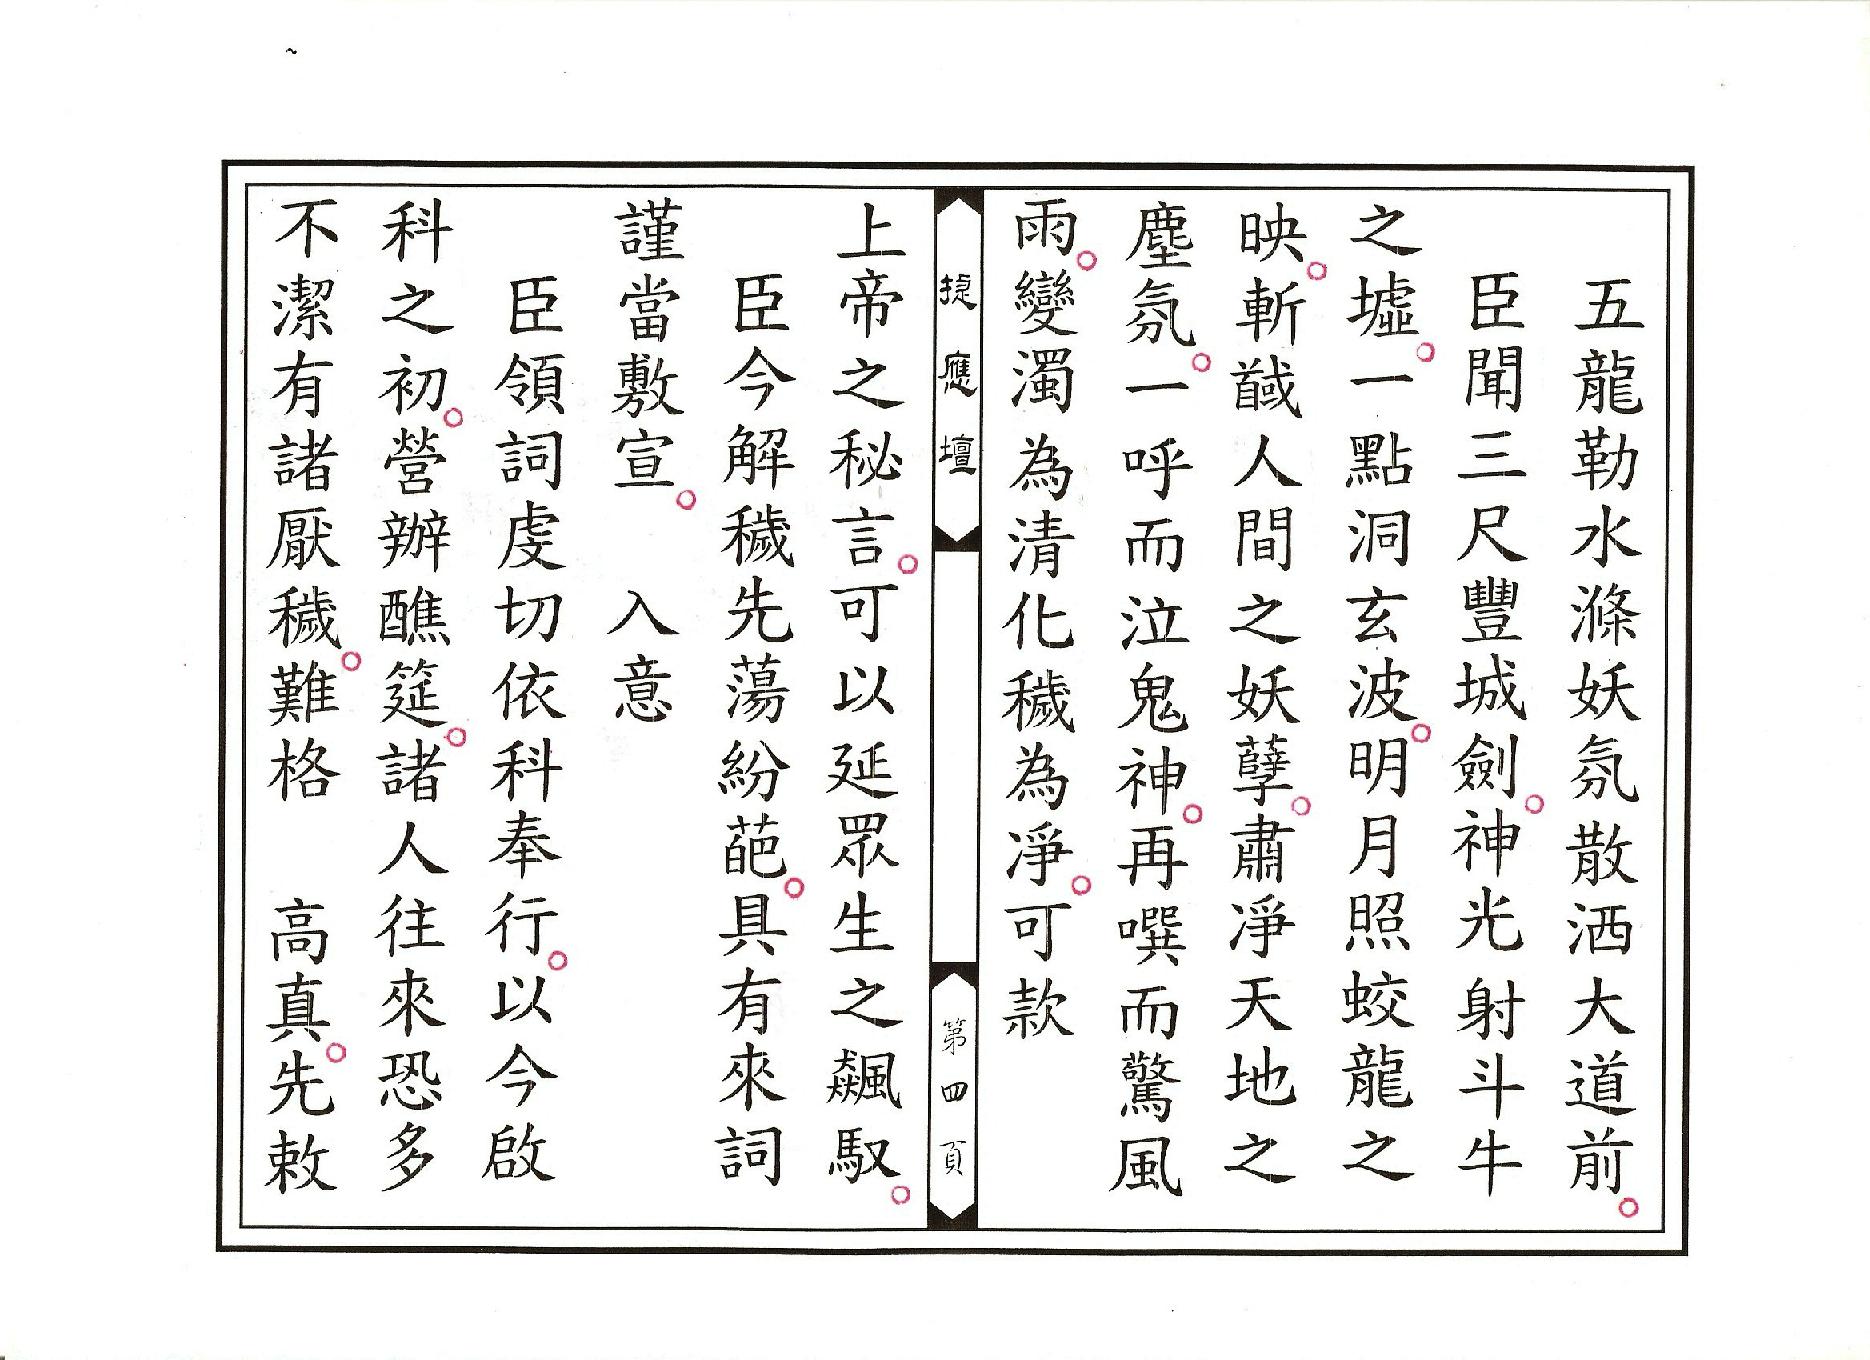 五龍勒水滌妖氛散洒大道前。
臣聞三尺豐城劍。神光射斗牛
之墟。一點洞玄波。明月照蛟龍之
映。斬馘人間之妖孽。肅淨天地之
塵氛。一呼而泣鬼神。再噀而驚風
雨。變濁為清化穢為淨。可款
捷應壇
第四頁
上帝之秘言。可以延眾生之飆馭。
臣今解穢先蕩紛葩。具有來詞
謹當敷宣。 入意
臣領詞虔切依科奉行。以今啟
科之初。營辦醮筵。諸人往來恐多
不潔有諸厭穢。難格 高真。先敕